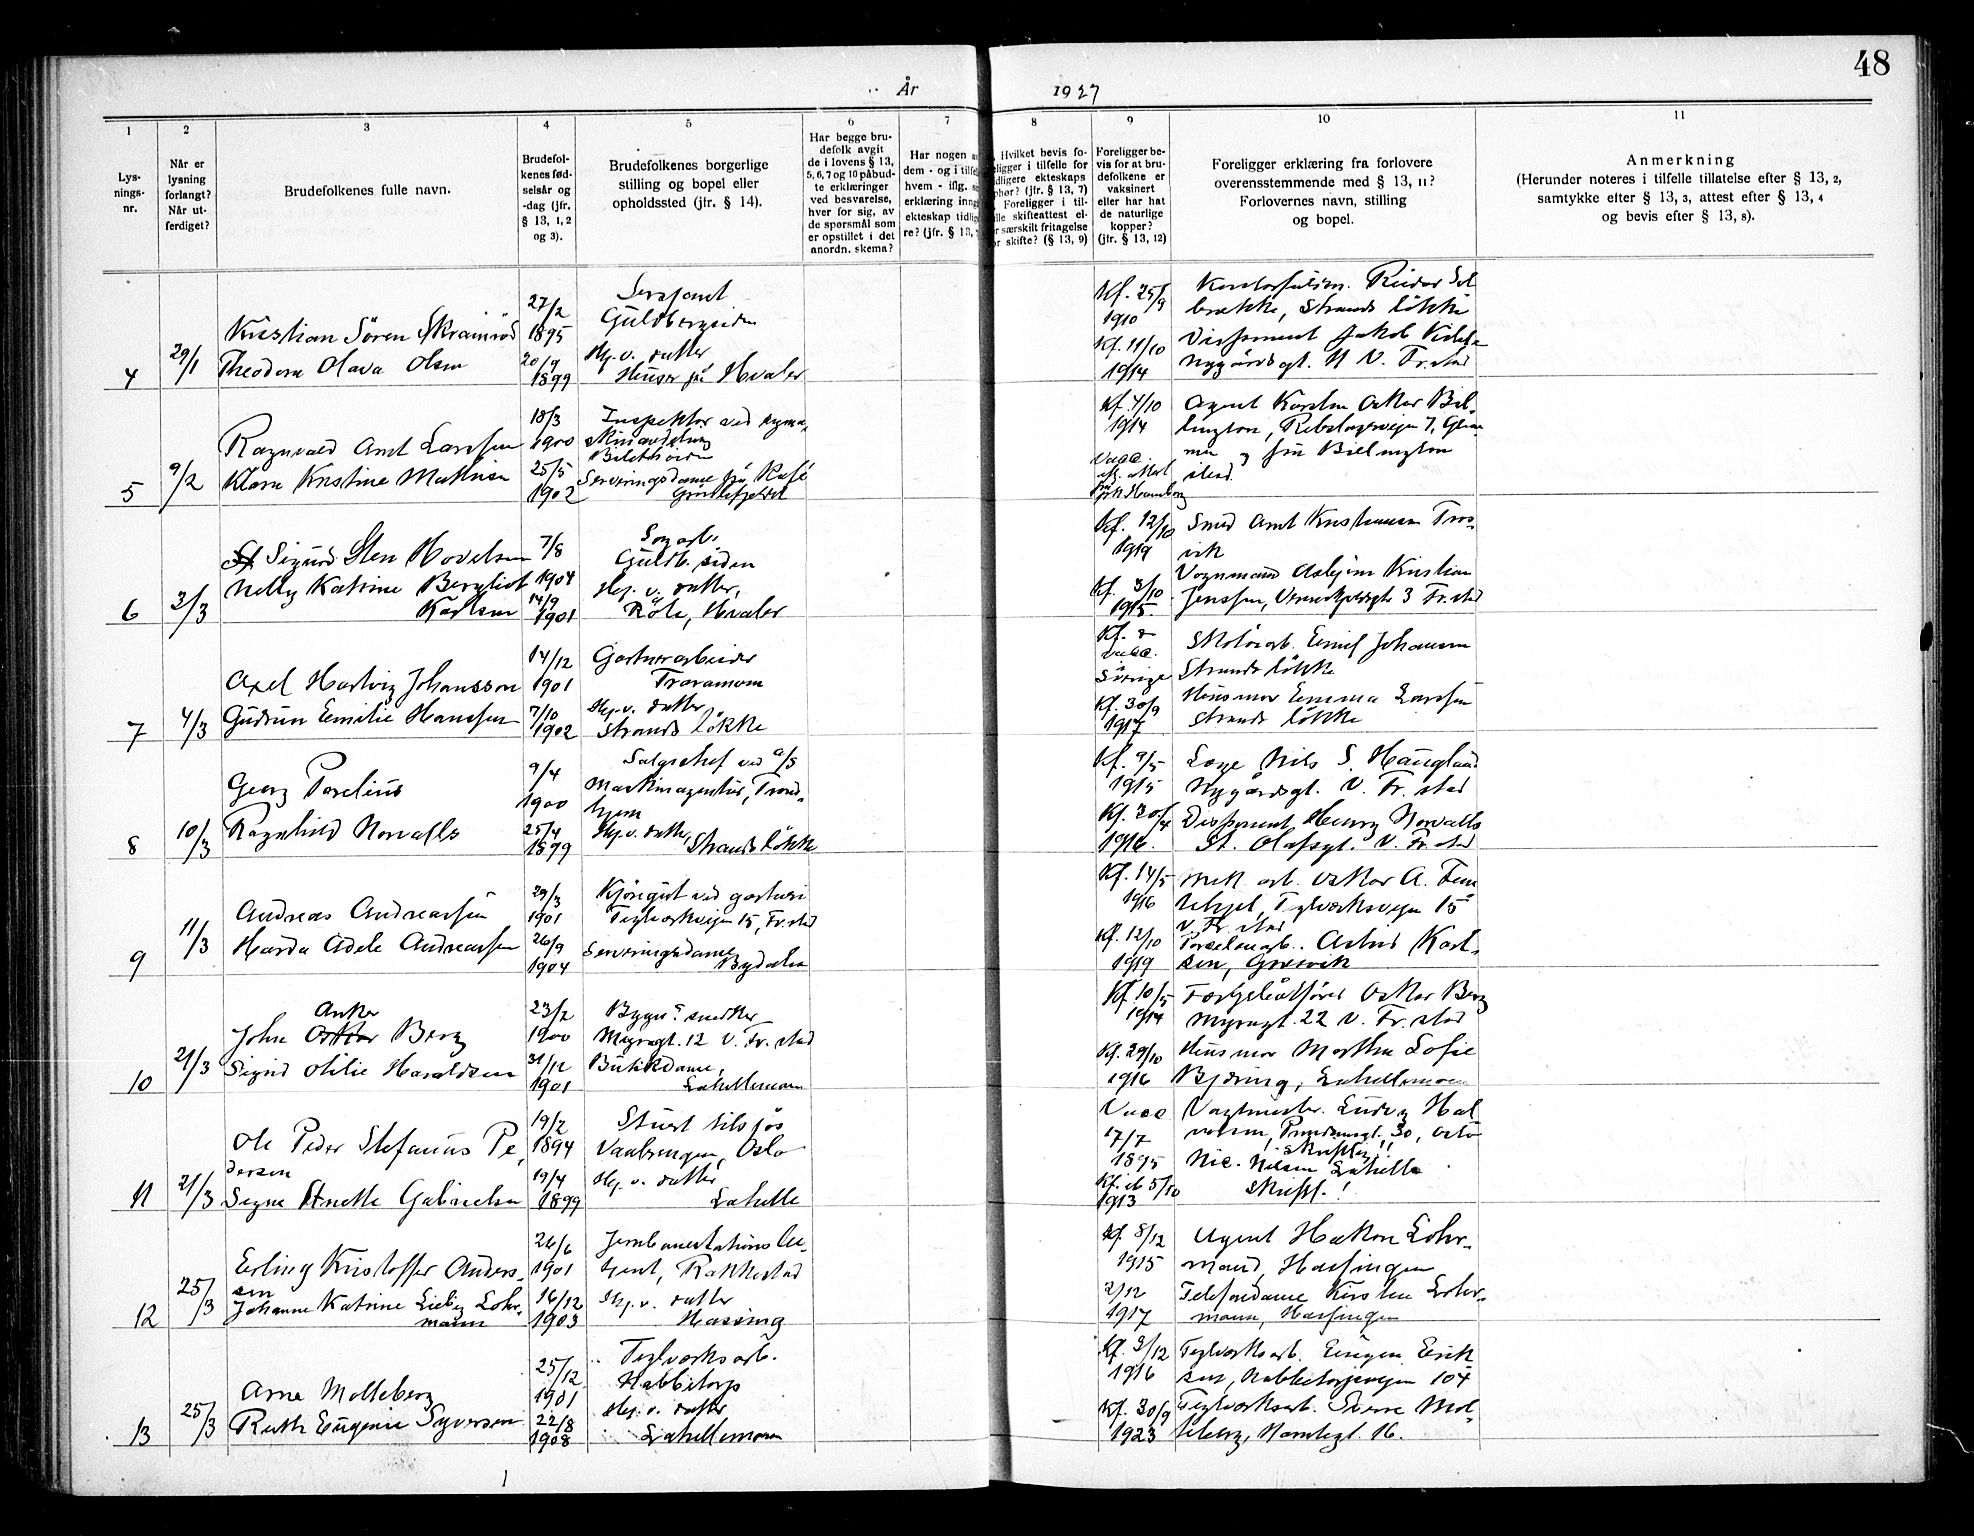 48
År 1927
1 2 3 4 5 6 7 8 9 10 11
Lys-
nings-
nr.
Når er
lysning
forlangt?
Når ut-
ferdiget?
Brudefolkenes fulle navn.
Brudefol-
kenes fød-
selsår og
-dag (jfr.
§ 13, 1, 2
og 3).
Brudefolkenes borgerlige
stilling og bopel eller
opholdssted (jfr. § 14).
Har begge bru-
defolk avgit
de i lovens § 13,
5, 6, 7 og 10 påbud-
te erklæringer
ved besvarelse,
hver for sig, av
de spørsmål som
er opstillet i det
anordn. skema?
Har nogen
dem - og i tilfe
hvem - iflg.
erklæring inng
ekteskap tidlig
re? (jfr. § 13,
Hvilket bevis fo-
eligger i tilfelle for
dligere ekteskaps
phør? (jfr. § 13, 7)
Foreligger i til-
lle skifteattest el-
r særskilt fritagelse
r skifte? (§ 13, 9)
Foreligger be-
vis for at bru-
defolkene er
vaksinert
eller har hat
de naturlige
kopper?
(jfr. § 13, 12)
Foreligger erklæring fra forlovere
overensstemmende med § 13, 11?
Forlovernes navn, stilling
og bopel.
Anmerkning
(Herunder noteres i tilfelle tillatelse efter § 13, 2,
samtykke efter § 13, 3, attest efter § 13, 4
og bevis efter § 13, 8).
4
29/1
Kristian Sören Skramröd
Theodora Olava Olsen
27/2
1895
20/9
1899
Sersjant
Guldbergsiden
Hj. v. datter
Huser på Hvaler
Kf. 25/9
1910
Kf. 11/10
1914
Kontorfuldm. Reidar Sol
brekke, Strands løkke
Disponent Jakob
Nygårdsgt. V. Fr.stad
5
9/2
Ragnvald Arnt Larssen
Klara Kristine Mathisen
18/3
1900
25/5
1902
Inspektør ved syma-
skinavdeling
Serveringsdame på Kafé
Kf. 4/10
1914
Vacc.
Agent Karsten Oskar Bil-
lington, Rebslagerveien 7,
fru Billington
6
3/3
Sigurd Sten Hovelsen
Nelly Katrine Bergliot
Karlsen
7/8
1904
14/9
1901
Sagarb.
Guldb. siden
Hj. v. datter,
Röle, Hvaler
Kf. 12/10
1919
Kf. 3/10
1915.
Smed Arnt Kristiansen Tros-
vik
Vognmand Asbjörn Kristian
Jenssen, 3 Fr. stad
7
4/3
Axel Hartvig Johansson
Gudrun Emilie Hanssen
14/12
1901
7/10
1902
Gartnerarbeider
Traramoen
Hj. v. datter
Strands løkke
Kf. &
vacc.
i
Sverige
Kf. 30/9
1917
Skotöiarb. Emil Johansen
Strands løkke
Husmor Emma Larssen
Strands løkke
8
10/3
Georg Parelius
Ragnhild Norvalls
9/4
1900
25/4
1899
Salgschef ved A/S
Maskinagentur, Trond-
hjem
Hj. v. datter, Strands løkke
Kf. 9/5
1915
Kf. 30/4
1916.
Læge Nils S. Haugland
Nygårdsgt. V. Fr. stad
Disponent Henry Norvalls
St. Olafsgt. V. Fr. stad
9
11/3
Andreas Andreassen
Harda Adele Andreassen
29/3
1901
26/9
1904
Kjöregut ved gartneri
Teglverksveien 15, Fr.stad
Serveringsdame
Bydalen
Kf. 14/5
1916
Kf. 12/10
1919
Mek. arb. Oskar A.
Teglverksveien 15
V. Fr. stad
Porselensarb. Astrid Karl-
sen, Gressvik
10
21/3
Anker
John Oskar Berg
Sigrid Otilie Haraldsen
23/2
1900
31/12
1901
Bygn.snedker
Myragt. 12 V. Fr. stad
Butikkdame,
Lahellemoen
Kf. 10/5
1914
Kf. 29/10
1916
Oskar Berg
Myragt. 22 V. Fr. stad
Husmor Martha Sofie
Bjering, Lahellemoen
11
21/3
Ole Peder Stefanus Pe-
dersen
Signe Anette Gabrielsen
19/2
1894
19/4
1899
Stuert tilsjøs
Vaalerengen, Oslo
Hj. v. datter
Lahelle
Vacc
17/7
1895
Kf. 5/10
1913
Vagtmester. Ludvig Hal
vorsen, 30, Oslo
Skriftlig!
Nic. Nilsen Lahelle
Skriftl.!
12
25/3
Erling Kristoffer Anders-
sen
Johanne Katrine Lieby Lohr-
mann
26/6
1901
16/12
1903
Jernbanestations be-
tjent, Rakkestad
Hj. v. datter
Hassing
Kf. 8/12
1915
2/12
1917
Agent Haakon Lohr-
mann, Hassingen
Telefondame Kirsten Lohr-
mann, Hassingen
13
25/3
Arne Molleberg
Ruth Eugenie Syversen
25/12
1901
22/8
1908
Teglverksarb.
Nabbetorp
Hj. v. datter
Lahellemoen
Kf. 3/12
1916
Kf. 30/9
1923
Teglverksarb. Eugen Erik
sen, Nabbetorpveien 104
Teglverksarb. Sverre Mol-
leberg, 16.